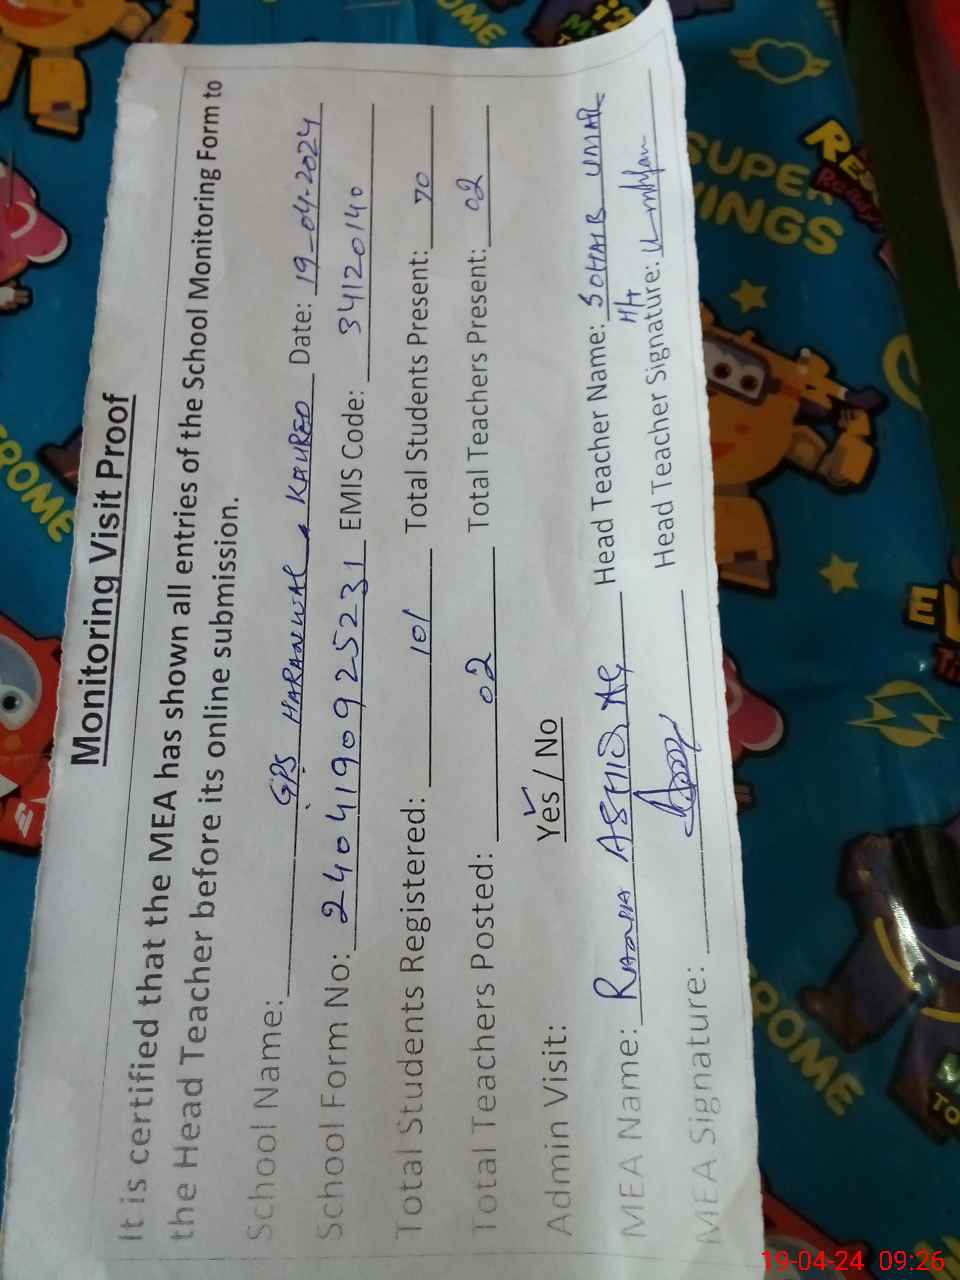 Monitoring Visit Proof
It is certified that the MEA has shown all entries of the School Monitoring Form to
the Head Teacher before its online submission.
School Name: GPS HARANWAL, KAURED Date: 19-04-2024
School Form No: 240419092523 1 EMIS Code: 34120140
Total Students Registered: 101 Total Students Present: 70
Total Teachers Posted: 02 Total Teachers Present: 02
Admin Visit: Yes / No
MEA Name: ASHIQ Head Teacher Name: SOHAIB UMAR
H/T
MEA Signature: Head Teacher Signature:
SUPER
WINGS
ROME
ROME
ROME
19-04-24 09:26